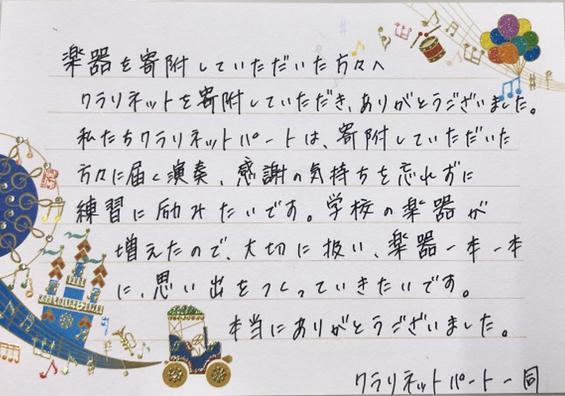 楽器を寄附していただいた方々へ
クラリネットを寄附していただき、ありがとうございました。
私たちクラリネットパートは、寄附していただいた
方々に届く演奏、感謝の気持ちを忘れずに
練習に励みたいです。学校の楽器が
増えたので、大切に扱い、楽器一本一本
に、思い出をつくっていきたいです。
本当にありがとうございました。
クラリネットパート一同